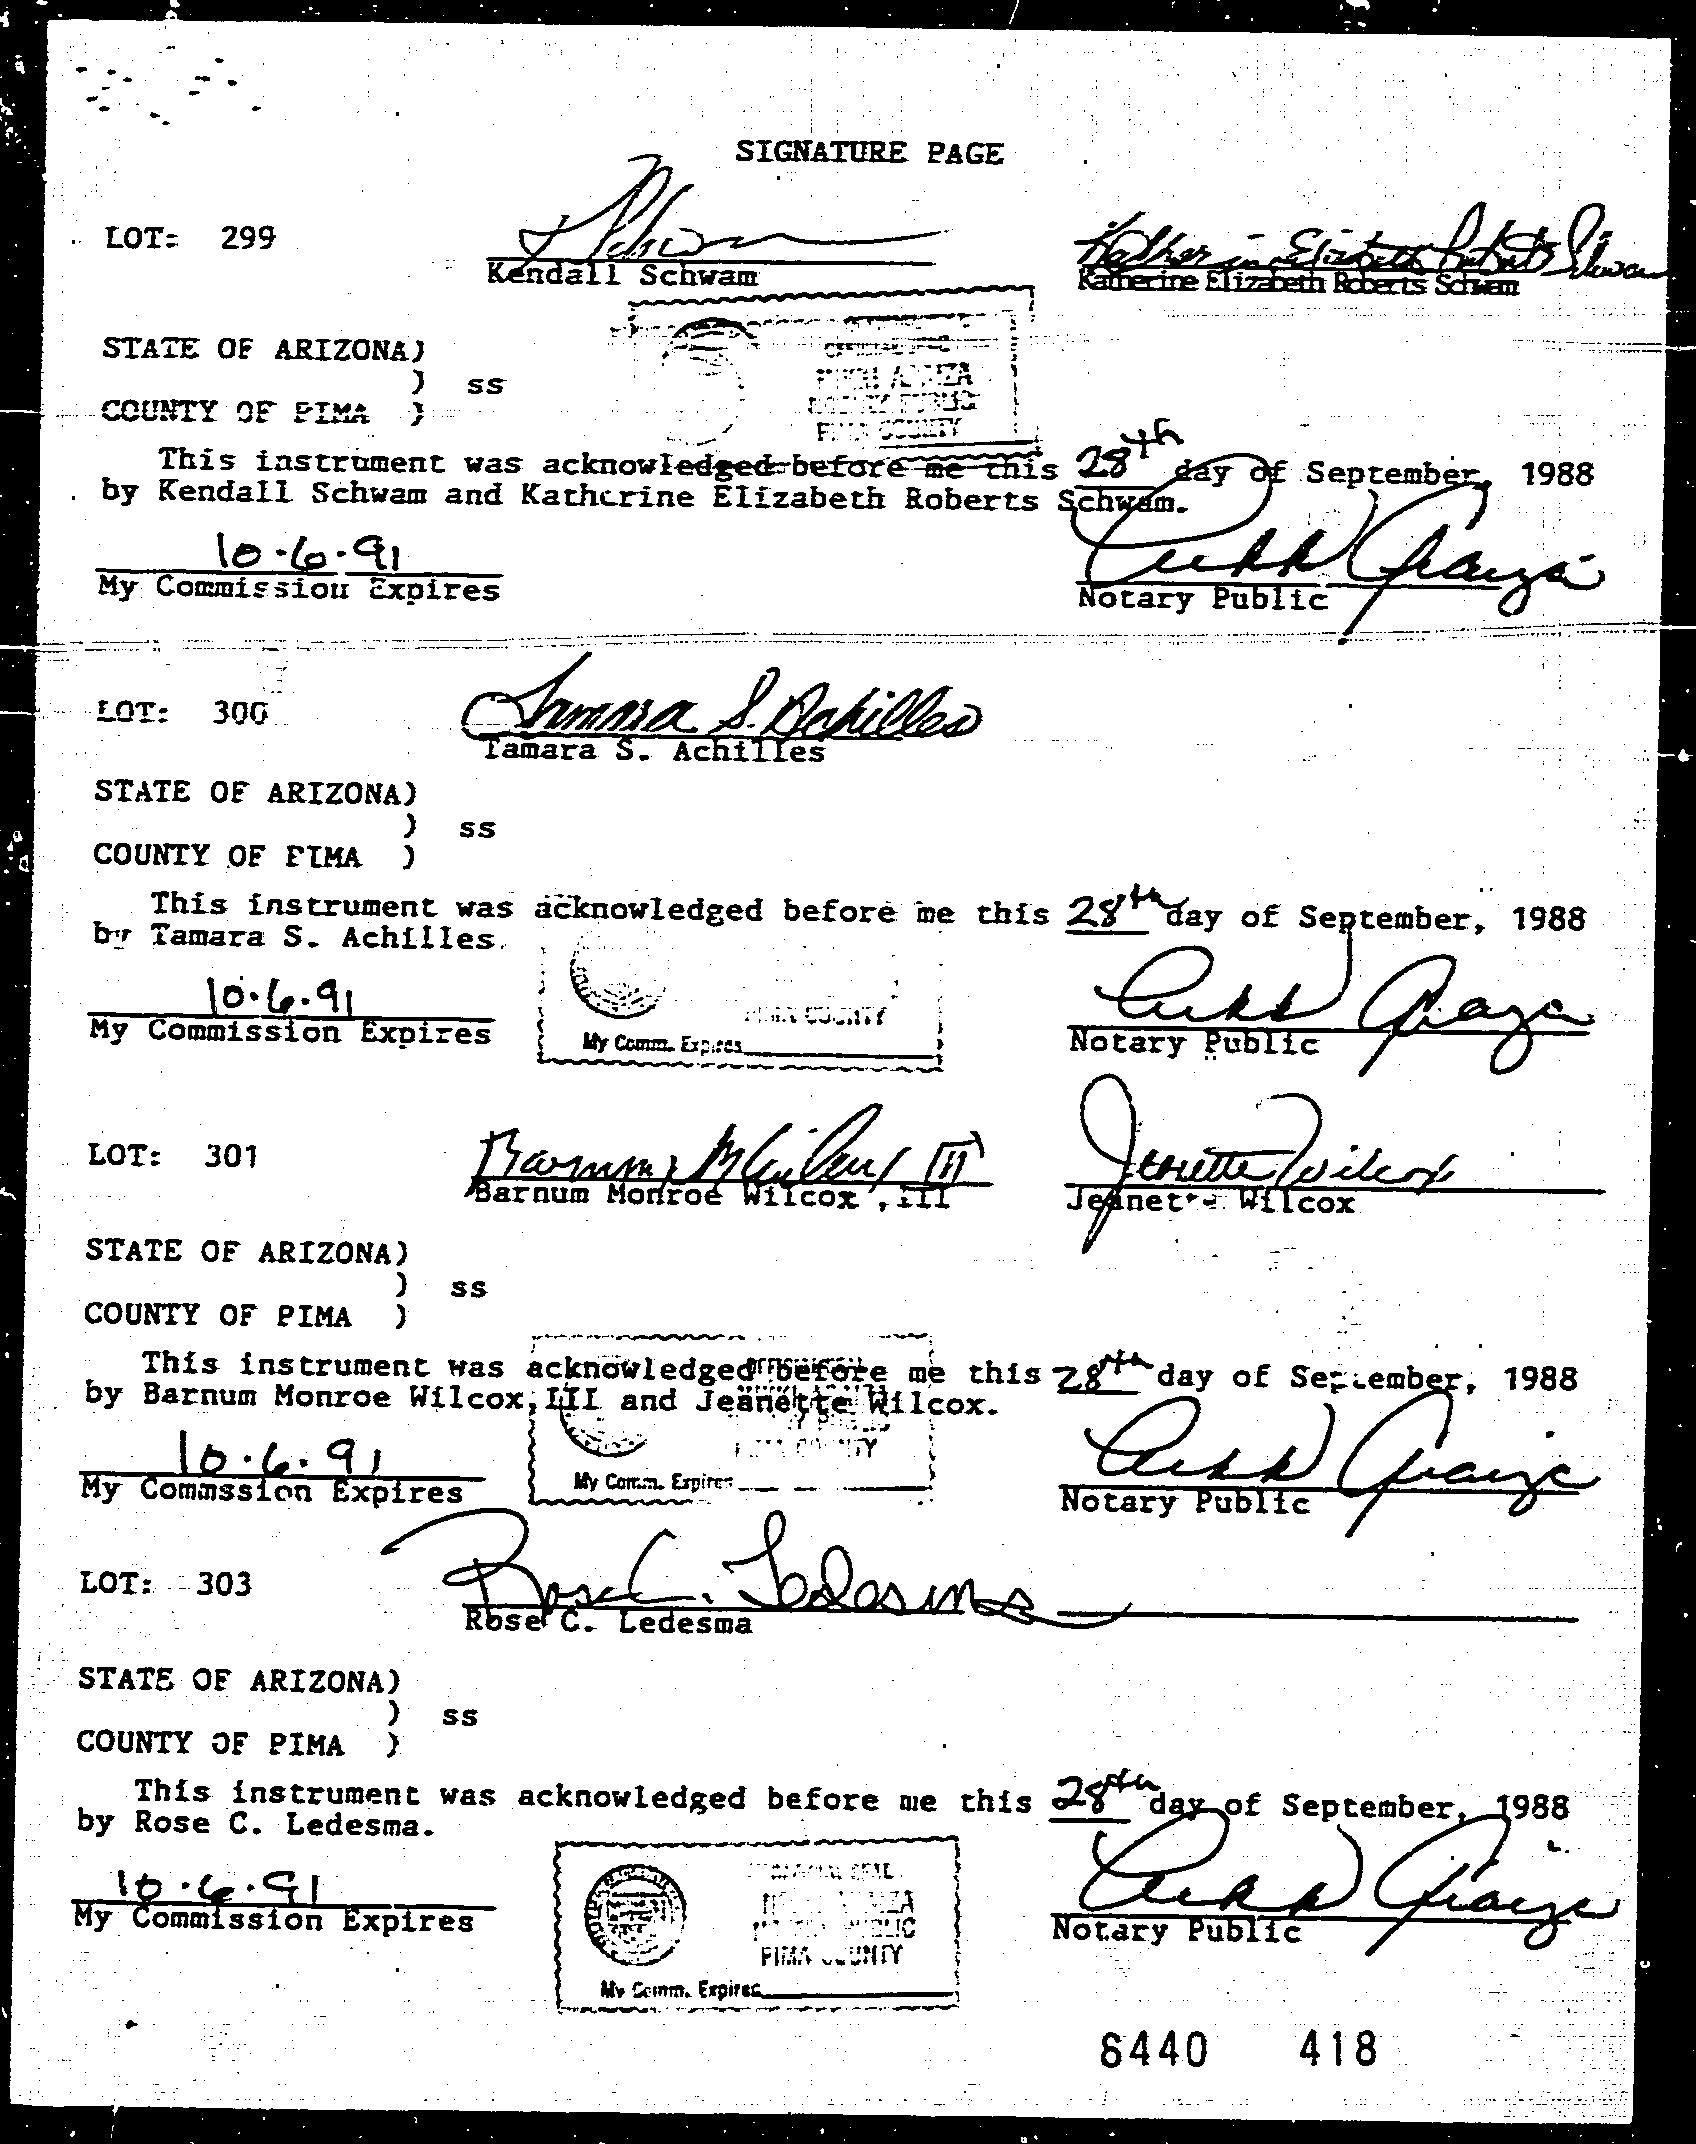 SIGNATURE PAGE
LOT: 299
Kendall Schwam
Katherine Elizabeth Roberts Schwam
Katherine Elizabeth Roberts Schwam
STATE OF ARIZONA)
) ss
COUNTY OF PIMA )
NOTARY PUBLIC
PIMA COUNTY
This instrument was acknowledged before me this 28th day of September, 1988
by Kendall Schwam and Katherine Elizabeth Roberts Schwam.
10.6.91
My Commission Expires
Notary Public
LOT: 300
Tamara S. Achilles
Tamara S. Achilles
STATE OF ARIZONA)
) ss
COUNTY OF PIMA )
This instrument was acknowledged before me this 28th day of September, 1988
by Tamara S. Achilles.
10.6.91
My Commission Expires
PIMA COUNTY
My Comm. Expires
Notary Public
LOT: 301
Barnum M Wilcox III
Jeanette Wilcox
Barnum Monroe Wilcox, III
Jeanette Wilcox
STATE OF ARIZONA)
) ss
COUNTY OF PIMA )
This instrument was acknowledged before me this 28th day of September, 1988
by Barnum Monroe Wilcox, III and Jeanette Wilcox.
10.6.91
My Commssion Expires
PIMA COUNTY
My Comm. Expires
Notary Public
LOT: 303
Rose C. Ledesma
Rose C. Ledesma
STATE OF ARIZONA)
) ss
COUNTY OF PIMA )
This instrument was acknowledged before me this 28th day of September, 1988
by Rose C. Ledesma.
10.6.91
My Commission Expires
OFFICIAL SEAL
NOTARY PUBLIC
PIMA COUNTY
My Comm. Expires
Notary Public
6440 418